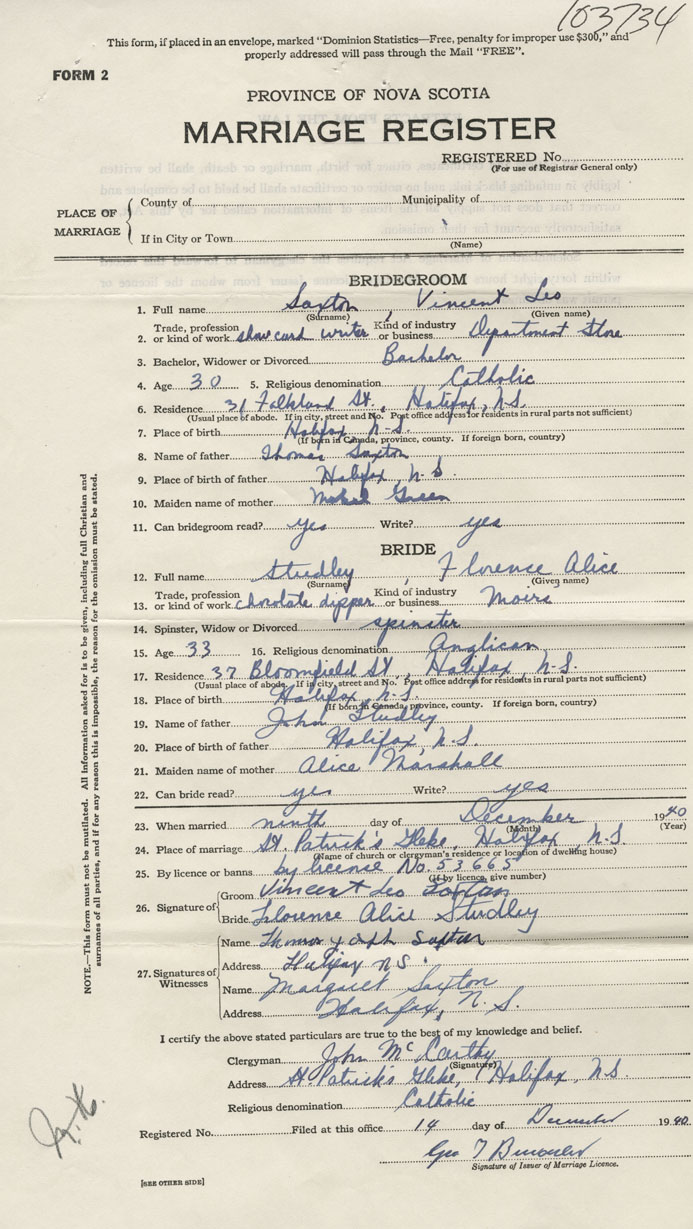 103734
This form, if placed in an envelope, marked "Dominion Statistics—Free, penalty for improper use $300," and
properly addressed will pass through the Mail "FREE".
FORM 2
PROVINCE OF NOVA SCOTIA
MARRIAGE REGISTER
REGISTERED No.
(For use of Registrar General only)
PLACE OF MARRIAGE
County of Municipality of
If in City or Town
(Name)
BRIDEGROOM
1. Full name Saxton, Vincent Leo
(Surname) (Given name)
2. Trade, profession or kind of work show card writer Kind of industry or business Department Store
3. Bachelor, Widower or Divorced Bachelor
4. Age 30 5. Religious denomination Catholic
6. Residence 31 Falkland St., Halifax, N.S.
(Usual place of abode. If in city, street and No. Post office address for residents in rural parts not sufficient)
7. Place of birth Halifax N-S.
(If born in Canada, province, county. If foreign born, country)
8. Name of father Thomas Saxton
9. Place of birth of father Halifax, N.S.
10. Maiden name of mother Green
11. Can bridegroom read? yes Write? yes
BRIDE
12. Full name Studley, Florence Alice
(Surname) (Given name)
13. Trade, profession or kind of work chocolate dipper Kind of industry or business Moirs
14. Spinster, Widow or Divorced spinster
15. Age 33 16. Religious denomination Anglican
17. Residence 37 Bloomfield St., Halifax, N-S.
(Usual place of abode. If in city, street and No. Post office address for residents in rural parts not sufficient)
18. Place of birth Halifax, N-S.
(If born in Canada, province, county. If foreign born, country)
19. Name of father John Studley
20. Place of birth of father Halifax, N.S.
21. Maiden name of mother Alice Marshall
22. Can bride read? yes Write? yes
23. When married ninth day of December 1940
(Month) (Year)
24. Place of marriage St. Patrick's Glebe, Halifax, N.S
(Name of church or clergyman's residence or location of dwelling house)
25. By licence or banns by licence No. 53665
(If by licence, give number)
26. Signature of
Groom Vincent Leo Saxton
Bride Florence Alice Studley
27. Signatures of Witnesses
Name Thomas Joseph Saxton
Address Halifax N.S.
Name Margaret Saxton
Address Halifax, N.S.
I certify the above stated particulars are true to the best of my knowledge and belief.
Clergyman John McCarthy
(Signature)
Address St. Patrick's Glebe, Halifax, N.S
Religious denomination Catholic
Registered No. Filed at this office 14 day of December 1940.
Geo T
Signature of Issuer of Marriage Licence.
[SEE OTHER SIDE]
NOTE.—This form must not be mutilated. All information asked for is to be given, including full Christian and
surnames of all parties, and if for any reason this is impossible, the reason for the omission must be stated.